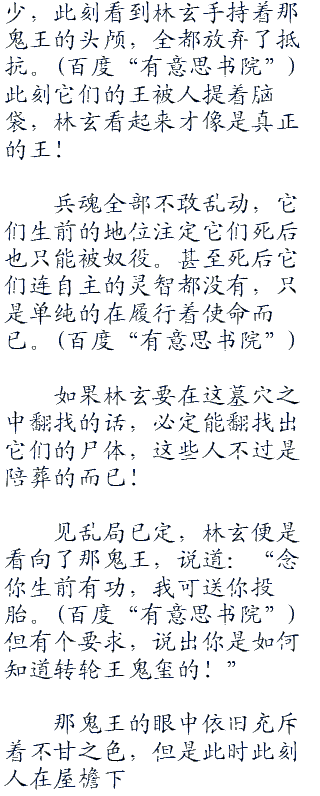 少，此刻看到林玄手持着那
鬼王的头颅，全都放弃了抵
抗。(百度“有意思书院”)
此刻它们的王被人提着脑
袋，林玄看起来才像是真正
的王！
兵魂全部不敢乱动，它
们生前的地位注定它们死后
也只能被奴役。甚至死后它
们连自主的灵智都没有，只
是单纯的在履行着使命而
已。(百度“有意思书院”)
如果林玄要在这墓穴之
中翻找的话，必定能翻找出
它们的尸体，这些人不过是
陪葬的而已！
见乱局已定，林玄便是
看向了那鬼王，说道：“念
你生前有功，我可送你投
胎。(百度“有意思书院”)
但有个要求，说出你是如何
知道转轮王鬼玺的！”
那鬼王的眼中依旧充斥
着不甘之色，但是此时此刻
人在屋檐下